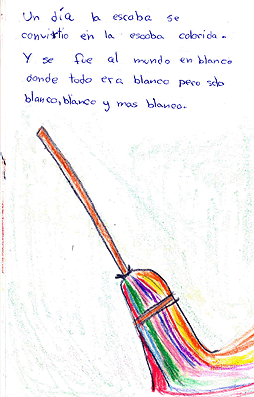 Un día la escoba se
convirtio en la escoba colorida.
Y se fue al mundo en blanco
donde todo era blanco pero solo
blanco, blanco y mas blanco.